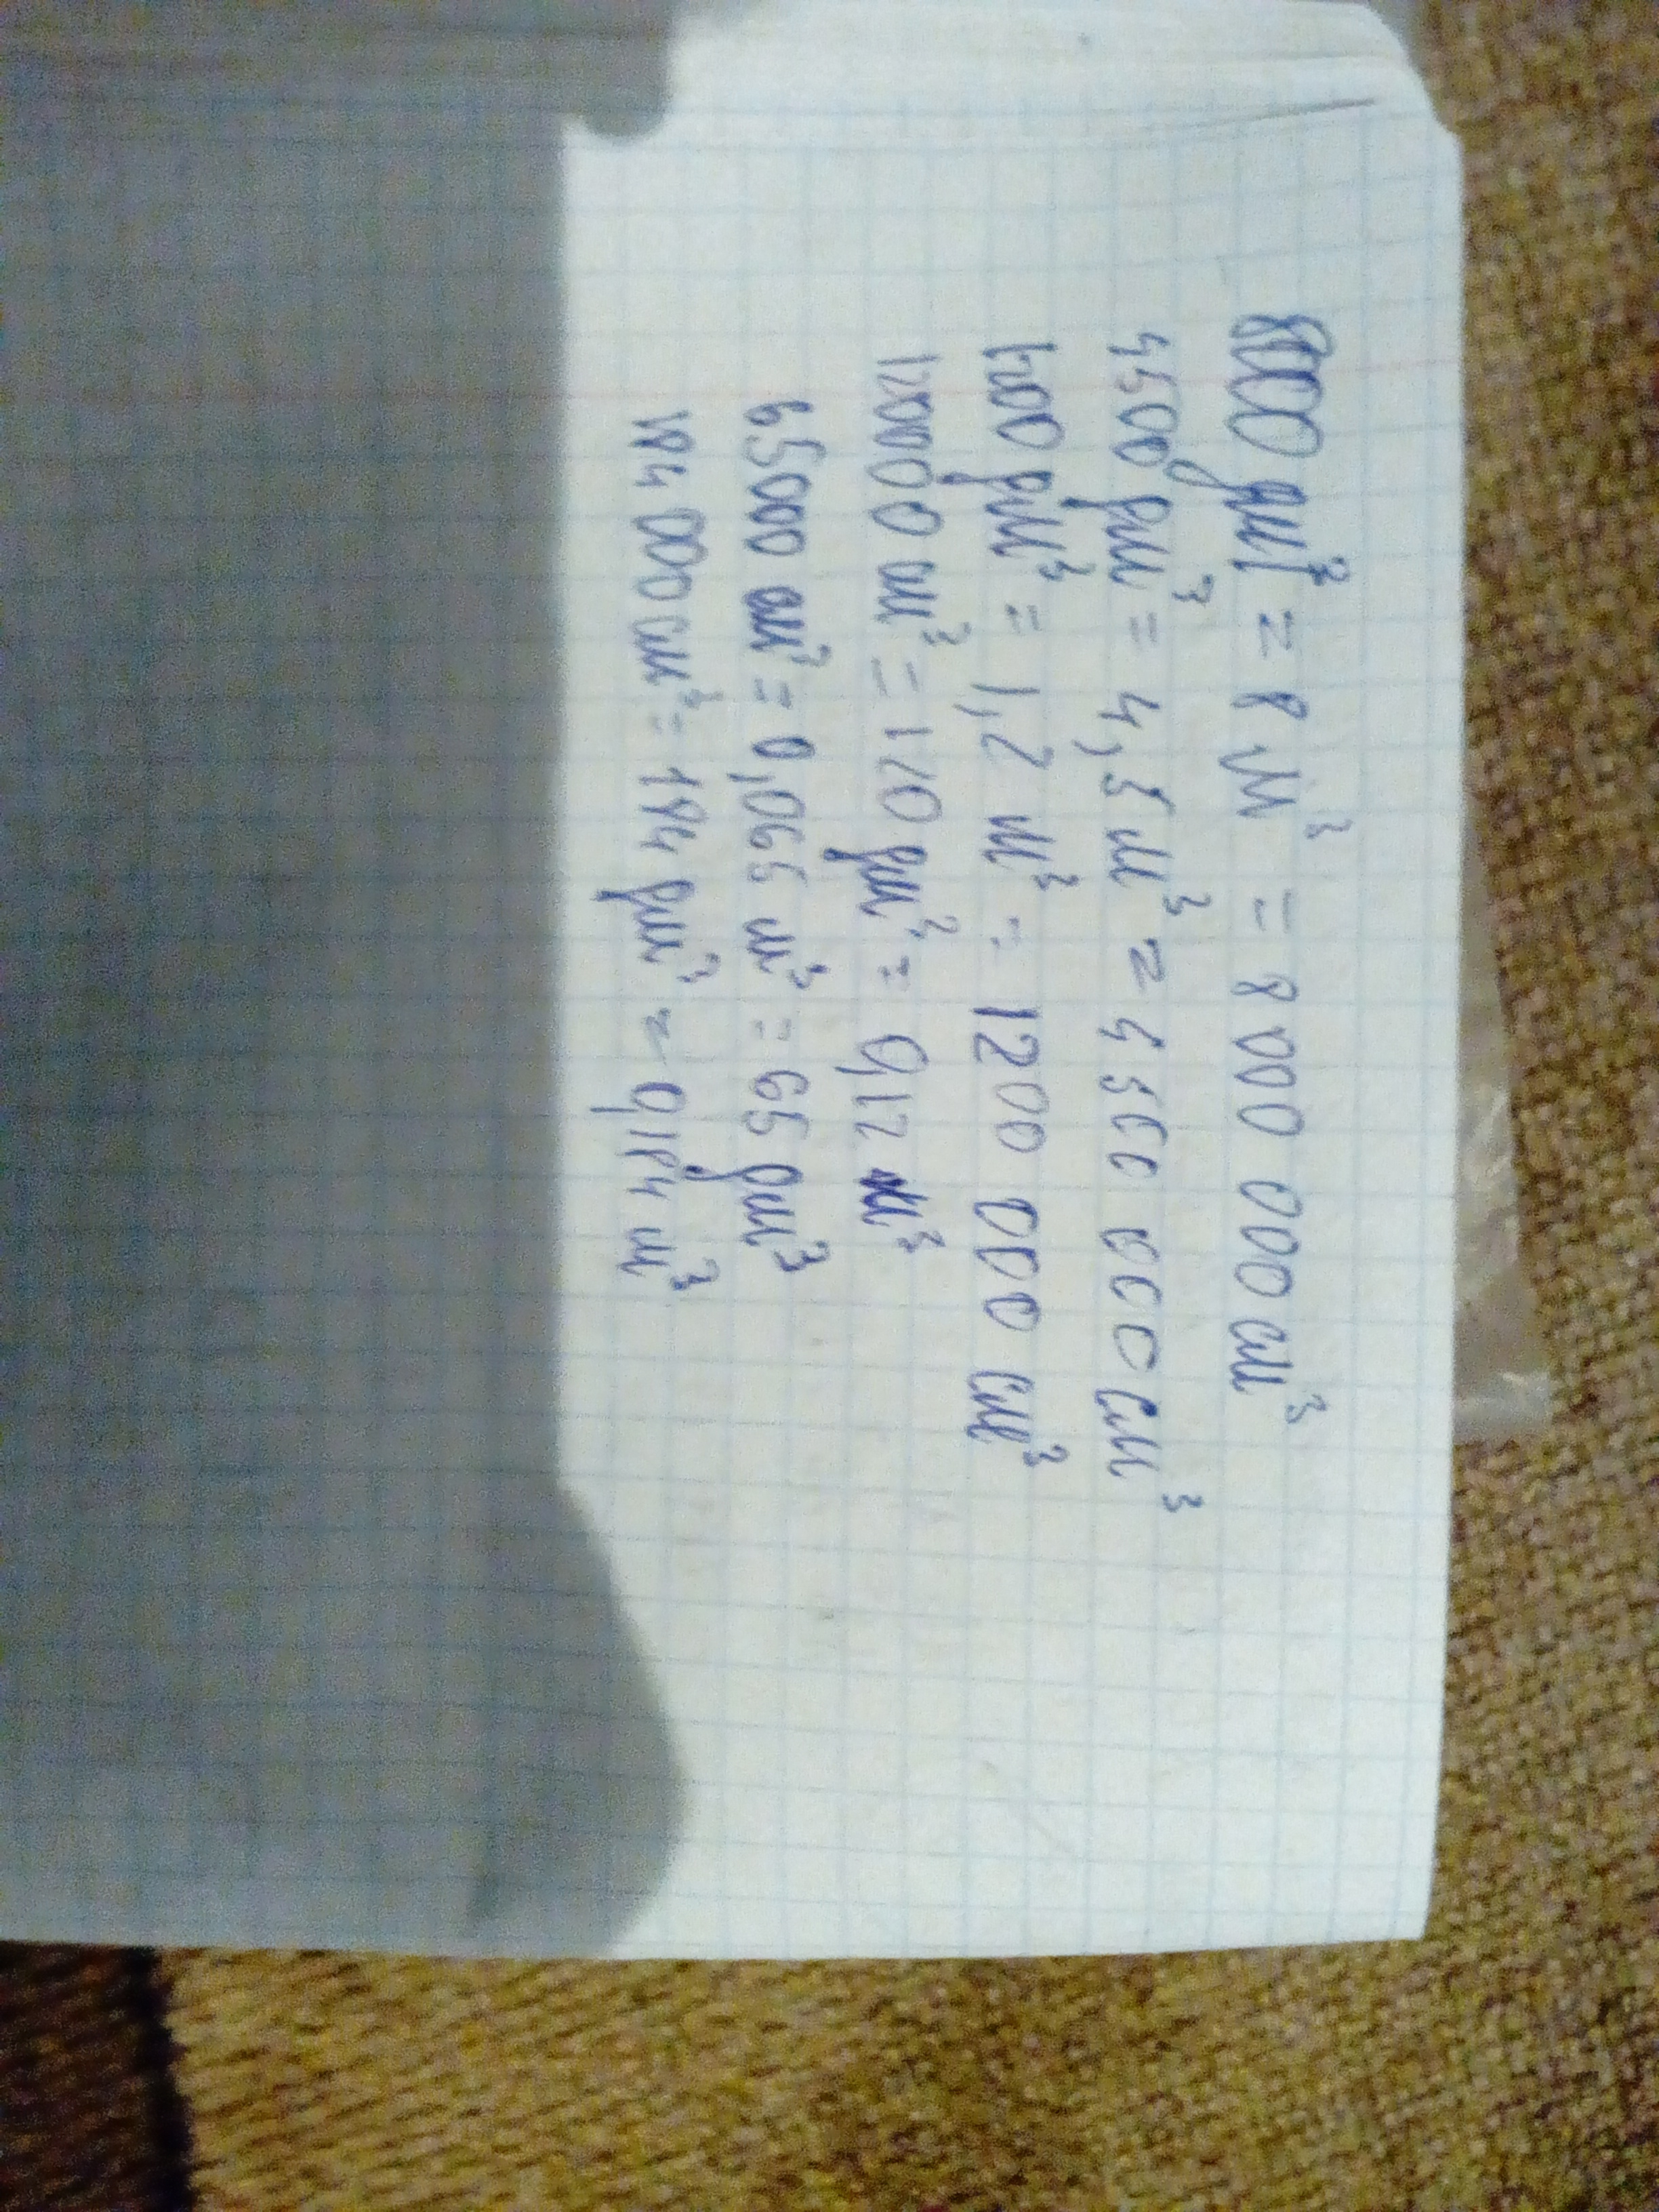 8000 дм³ = 8 м³ = 8 000 000 см³
4500 дм³ = 4,5 м³ = 4 500 000 см³
1200 дм³ = 1,2 м³ = 1200 000 см³
120000 см³ = 120 дм³ = 0,12 м³
65000 см³ = 0,065 м³ = 65 дм³
184 000 см³ = 184 дм³ = 0,184 м³